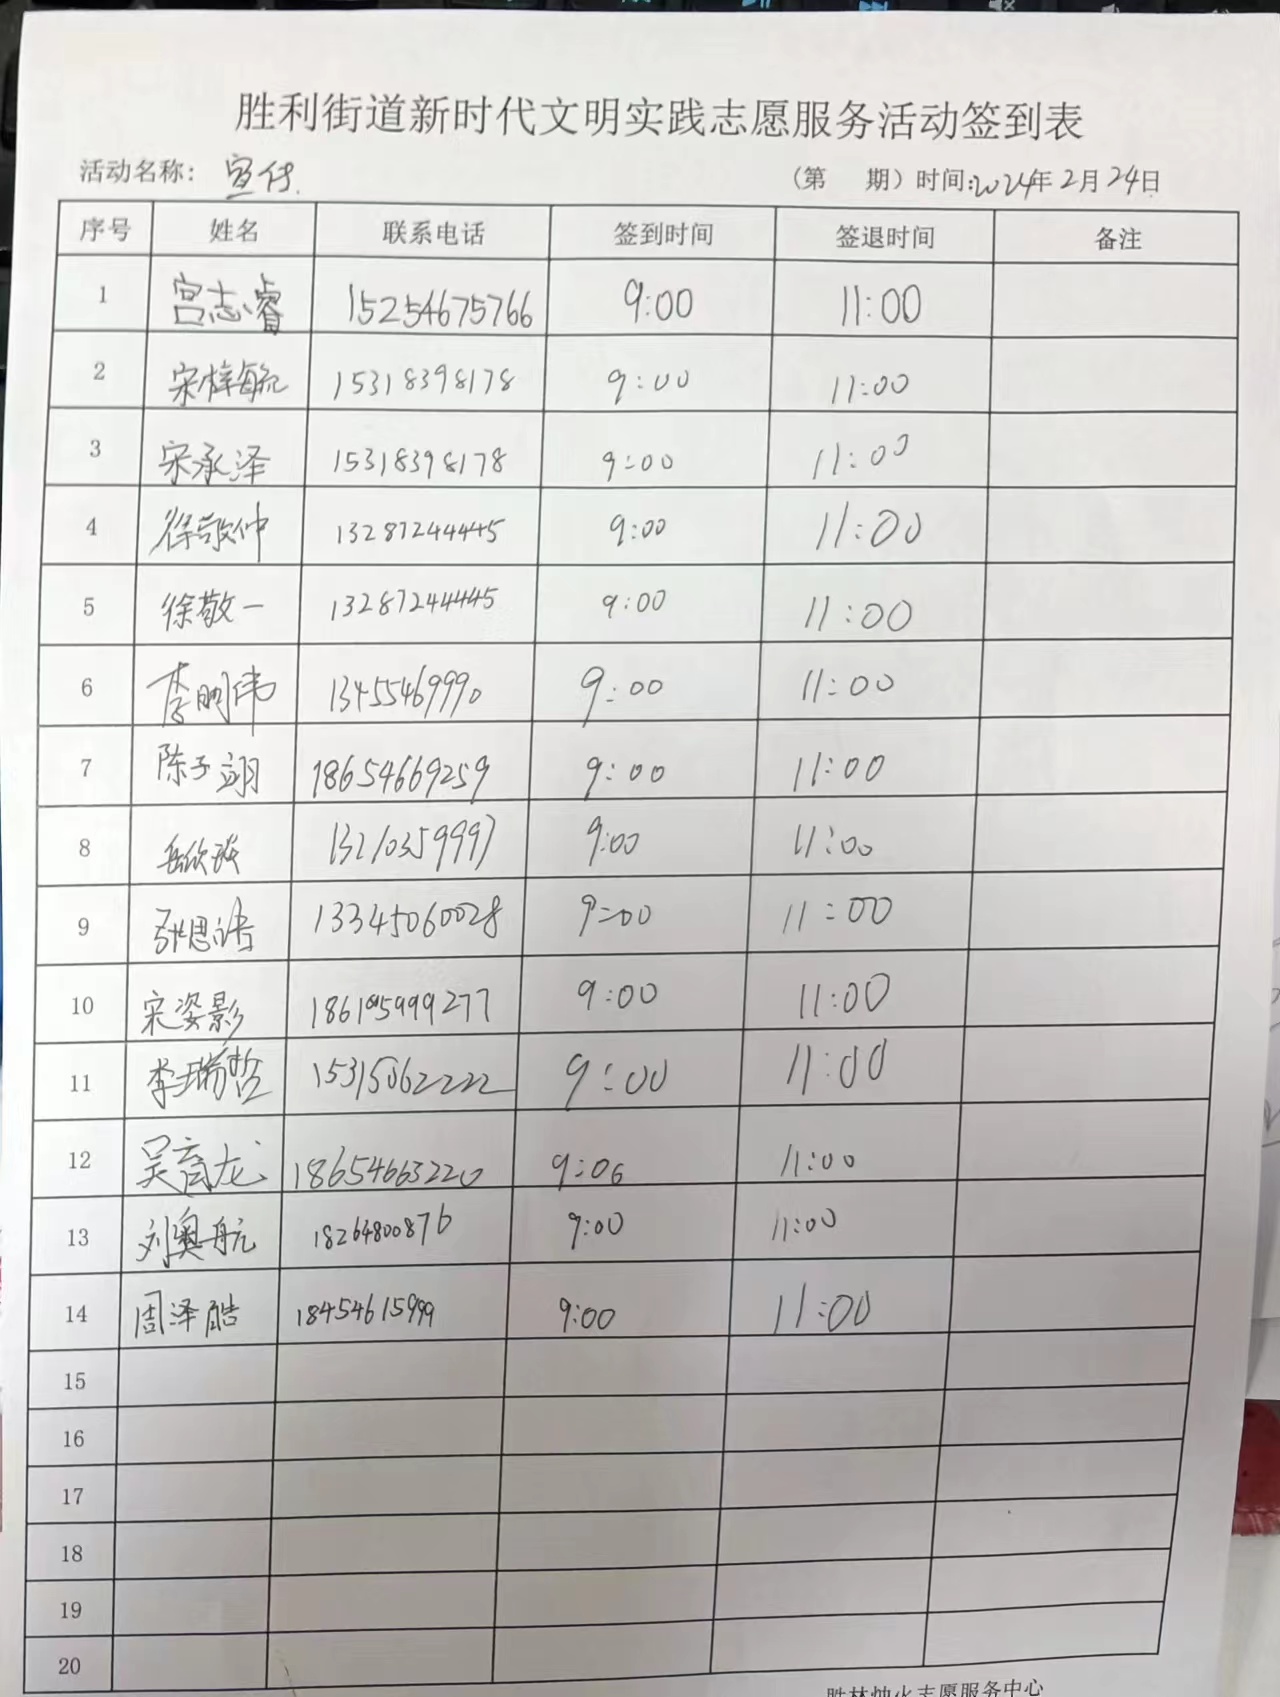 胜利街道新时代文明实践志愿服务活动签到表
活动名称：宣传. （第 期）时间：2024年2月24日
序号 姓名 联系电话 签到时间 签退时间 备注
1 宫志睿 15254675766 9:00 11:00
2 宋梓毓 15318398178 9:00 11:00
3 宋承泽 15318398178 9:00 11:00
4 徐敬仲 13287244445 9:00 11:00
5 徐敬一 13287244445 9:00 11:00
6 李明伟 13455469990 9:00 11:00
7 陈子翊 18654669259 9:00 11:00
8 岳欣 13210359997 9:00 11:00
9 张思语 13345060028 9:00 11:00
10 宋姿影 9:00 11:00
11 李瑞哲 15315062222 9:00 11:00
12 吴育龙 18654663220 9:06 11:00
13 刘奥航 18264800876 9:00 11:00
14 周泽酷 18454615999 9:00 11:00
15
16
17
18
19
20
胜林灿火志愿服务中心